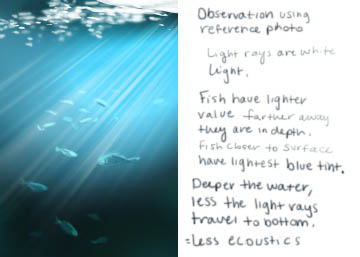 Observation using
reference photo
Light rays are white
Light.
Fish have lighter
value farther away
they are in depth.
Fish closer to surface
have lightest blue tint.
Deeper the water,
less the light rays
travel to bottom.
=Less ecoustics